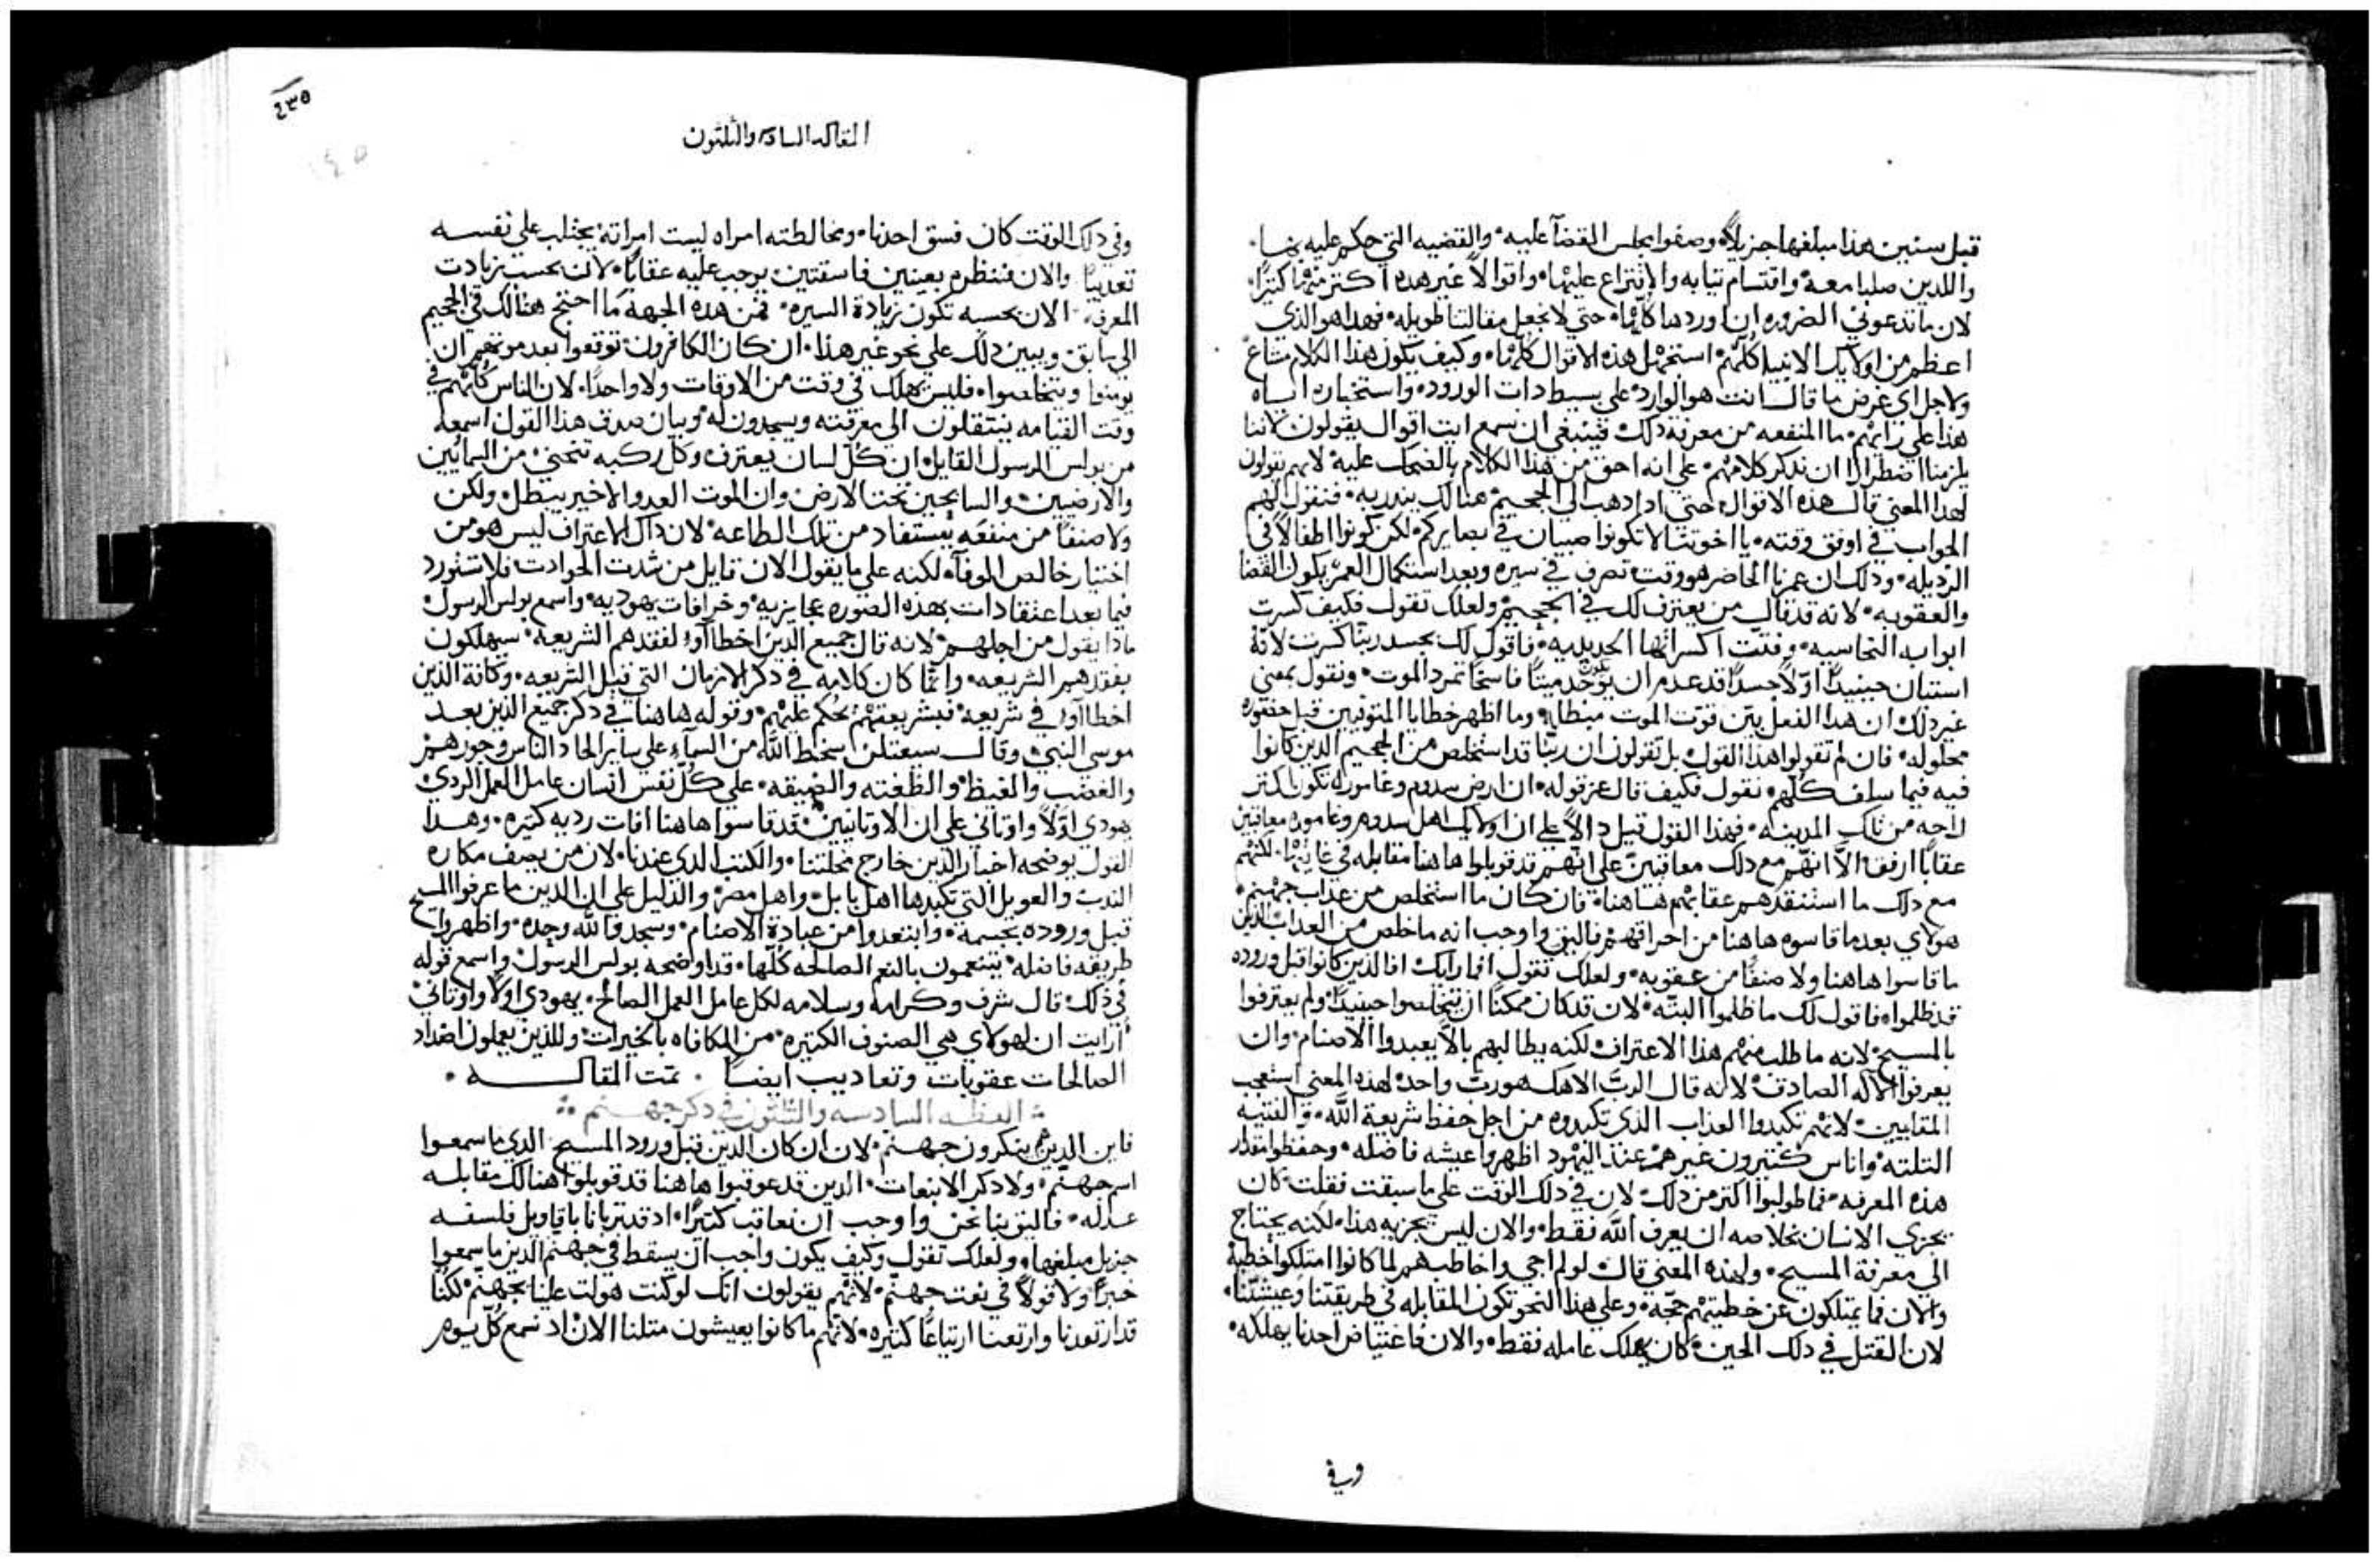 قبل سنين هذا مبلغها جزيلاً وصفوا مجلس القضآ عليه والقضيه التي حكم عليه بها
واللدين صلبا معه واقتسام تيابه والاقتراع عليها واقوالاً غير هده اكتر منها كتيرًا
لان ما تدعوني الضروره ان اوردها كلها حتي لا نجعل مقالتنا طويله فهدا هو الذي
اعظم من اوليك الانبيا كلهم استخبر هذه الاقوال كلها وكيف يكون هذا الكلام متاغ
ولاجل اي غرض ما قال انت هو الوارد علي بسيط دات الورود واستخباره اساه
هذا علي رايهم ما المنفعه من معرفة دلك فينبغي ان نسمع ايت اقوال يقولون لاننا
يلزمنا اضطرارا ان ندكر كلامهم علي انه احق من هذا الكلام بالضحك عليه لانهم يقولون
لهدا المعني قال هذه الاقوال حتي ادا دهب الي الجحيم هنالك يندر به فنقول لهم
الجواب في اوفق وقته يا اخوتنا لا تكونوا صبيان في بصايركم لكن كونوا اطفالاً في
الرديله ودلك ان عمرنا الحاضر هو وقت تصرف في سيره وبعد استكمال العمر يكون القضا
والعقوبه لانه قد قال من يعترف لك في الجحيم ولعلك تقول فكيف كسرت
ابوابه النحاسيه وفتت اكسارها الحديديه فاقول لك بجسد ربنا كسرت لانه
استبان حينيدًا اولاً جسدًا قد عدم ان يوخد ميتًا فاسخًا تمرد الموت ونقول بمعني
غير دلك ان هدا الفعل بين قوت الموت مبطله وما اظهر خطايا المتوفيين قبل حضوره
محلوله فان لم تقولوا هذا القول بل تقولون ان ربنا قد استخلص من الجحيم الدين كانوا
فيه فيما سلف كلهم نقول فكيف قال عز قوله ان ارض سدوم وغاموره تكون اكتر
راحه من تلك المدينه فهذا القول قيل دالاً علي ان اوليك اهل سدوم وغاموره معاقبين
عقابًا ارفق الا انهم مع دلك معاقبين علي انهم قد قوبلوا هاهنا مقابله في غايتها لكنهم
مع دلك ما استنقدهم عقابهم هاهنا فان كان ما استخلص من عداب جهنم
هولاي بعد ما قاسوه هاهنا من احراقهم فاليق واوجب انه ما خلص من العداب الدين
ما قاسوا هاهنا ولا صنفًا من عقوبه ولعلك تقول افما رايك افالذين كانوا قبل وروده
قد ظلموا فاقول لك ما ظلموا البته لان قد كان ممكنًا ان يتخلصوا حينيدًا ولم يعترفوا
بالمسيح لانه ما طلب منهم هذا الاعتراف لكنه يطالبهم بالا يعبدوا الاصنام وان
يعرفوا الاله الصادق لانه قال الرب الاهك هو رب واحد لهذا المعني استعجب
المقابيين لانهم تكبدوا العداب الذي تكبدوه من اجل حفظ شريعة الله والفتيه
التلته واناس كتيرون غيرهم عند اليهود اظهروا عيشه فاضله وحفظوا مقدار
هذه المعرفه فما طولبوا اكتر من دلك لان في دلك الوقت علي ما سبقت فقلت كان
يجزي الانسان لخلاصه ان يعرف الله فقط والان ليس يجزيه هذا لكنه يحتاج
الي معرفة المسيح ولهذا المعني قال لو لم اجي واخاطبهم لما كانوا امتلكوا خطيه
والان فما يمتلكون عن خطيتهم حجه وعلي هذا النحو تكون المقابله في طريقتنا وعيشتنا
لان القتل في دلك الحين كان يهلك عامله فقط والان فاغتياض احدنا يهلكه
وفي
٤٣٥
المقاله السادسه والثلثون
وفي دلك الوقت كان فسق احدنا ومخالطته امراه ليست امراته يجتلب علي نفسه
تعديبًا والان فننظرم بعينين فاسقتين يوجب عليه عقابًا لان بحسب زيادت
المعرفه الان بحسبه تكون زيادة السيره فمن هده الجهه ما احتج هنالك في الجحيم
الي سابق ويبين دلك علي نحو غير هذا ان كان الكافرون توقعوا بعد موتهم ان
يومنوا ويتخلصوا فليس يهلك في وقت من الاوقات ولا واحدًا لان الناس كلهم في
وقت القيامه ينتقلون الي معرفته ويسجدون له وبيان صدق هذا القول اسمعه
من بولس الرسول القايل ان كل لسان يعترف وكل ركبه تنحني من السمايين
والارضيين والسابحين تحت الارض وان الموت العدو الاخير يبطل ولكن
ولا صنفًا من منفعه يستفاد من تلك الطاعه لان داك الاعتراف ليس هو من
اختيار خالص الوفآ لكنه علي ما يقول الان قايل من شدت الحوادت فلا تشورد
فيما بعد اعتقادات بهذه الصوره عجايزيه وخرافات يهوديه واسمع بولس الرسول
مادا يقول من اجلهم لانه قال جميع الدين اخطاآوا لفقدهم الشريعه سيهلكون
بفقدهم الشريعه وانما كان كلامه في دكر الازمان التي قبل الشريعه وكافة الذين
اخطاآوا في شريعه فبشريعتهم يحكم عليهم وقوله هاهنا في دكر جميع الذين بعد
موسي النبي وقال سيعتلن سخط الله من السمآء علي ساير الحاد الناس وجورهم
والغضب والغيظ والظغته والضيقه علي كل نفس انسان عامل العمل الردي
يهودي اولاً واوتاني علي ان الاوتانيين قد قاسوا هاهنا افات رديه كتيره وهدا
القول يوضحه اخبار الذين خارج محلتنا والكتب الدي عندنا لان من يصف مكاره
الندب والعويل التي تكبدها اهل بابل واهل مصر والدليل علي ان الدين ما عرفوا المسيح
قبل وروده بجسمه وابتعدوا من عبادة الاصنام وسجدوا لله وحده واظهروا
طريقه فاضله يتنعمون بالنعم الصالحه كلها قد اوضحه بولس الرسول واسمع قوله
في ذلك قال شرف وكرامه وسلامه لكل عامل العمل الصالح يهودي اولاً واوتاني
ارايت ان لهولاي هي الصنوف الكتيره من المكافاه بالخيرات وللذين يعملون اضداد
الصالحات عقوبات وتعاديب ايضًا تمت المقاله
العظه السادسه والثلثون في دكر جهنم
فاين الدين ينكرون جهنم لان ان كان الدين قبل ورود المسيح الدي ما سمعوا
اسم جهنم ولا دكر الانبعات الدين قد عوقبوا هاهنا قد قوبلوا هنالك مقابله
عدله فاليق بنا نحن واوجب ان نعاقب كتيرًا اد قد تربانا باقاويل فلسفه
جزيل مبلغها ولعلك تقول وكيف يكون واجب ان يسقط في جهنم الدين ما سمعوا
خبرًا ولا قولاً في نعت جهنم لانهم يقولون انك لو كنت هولت علينا بجهنم لكنا
قد ارتعدنا وارتعنا ارتياعًا كتيره لانهم ما كانوا يعيشون متلنا الان اد نسمع كل يوم